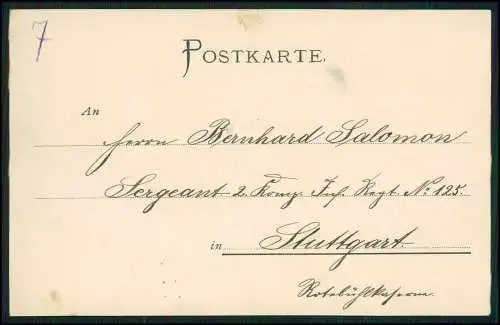 7
POSTKARTE.
An
Herrn Bernhard Salomon
Sergeant 2. Komp. Inf. Regt. No. 125.
in Stuttgart.
Rotebühlkaserne.